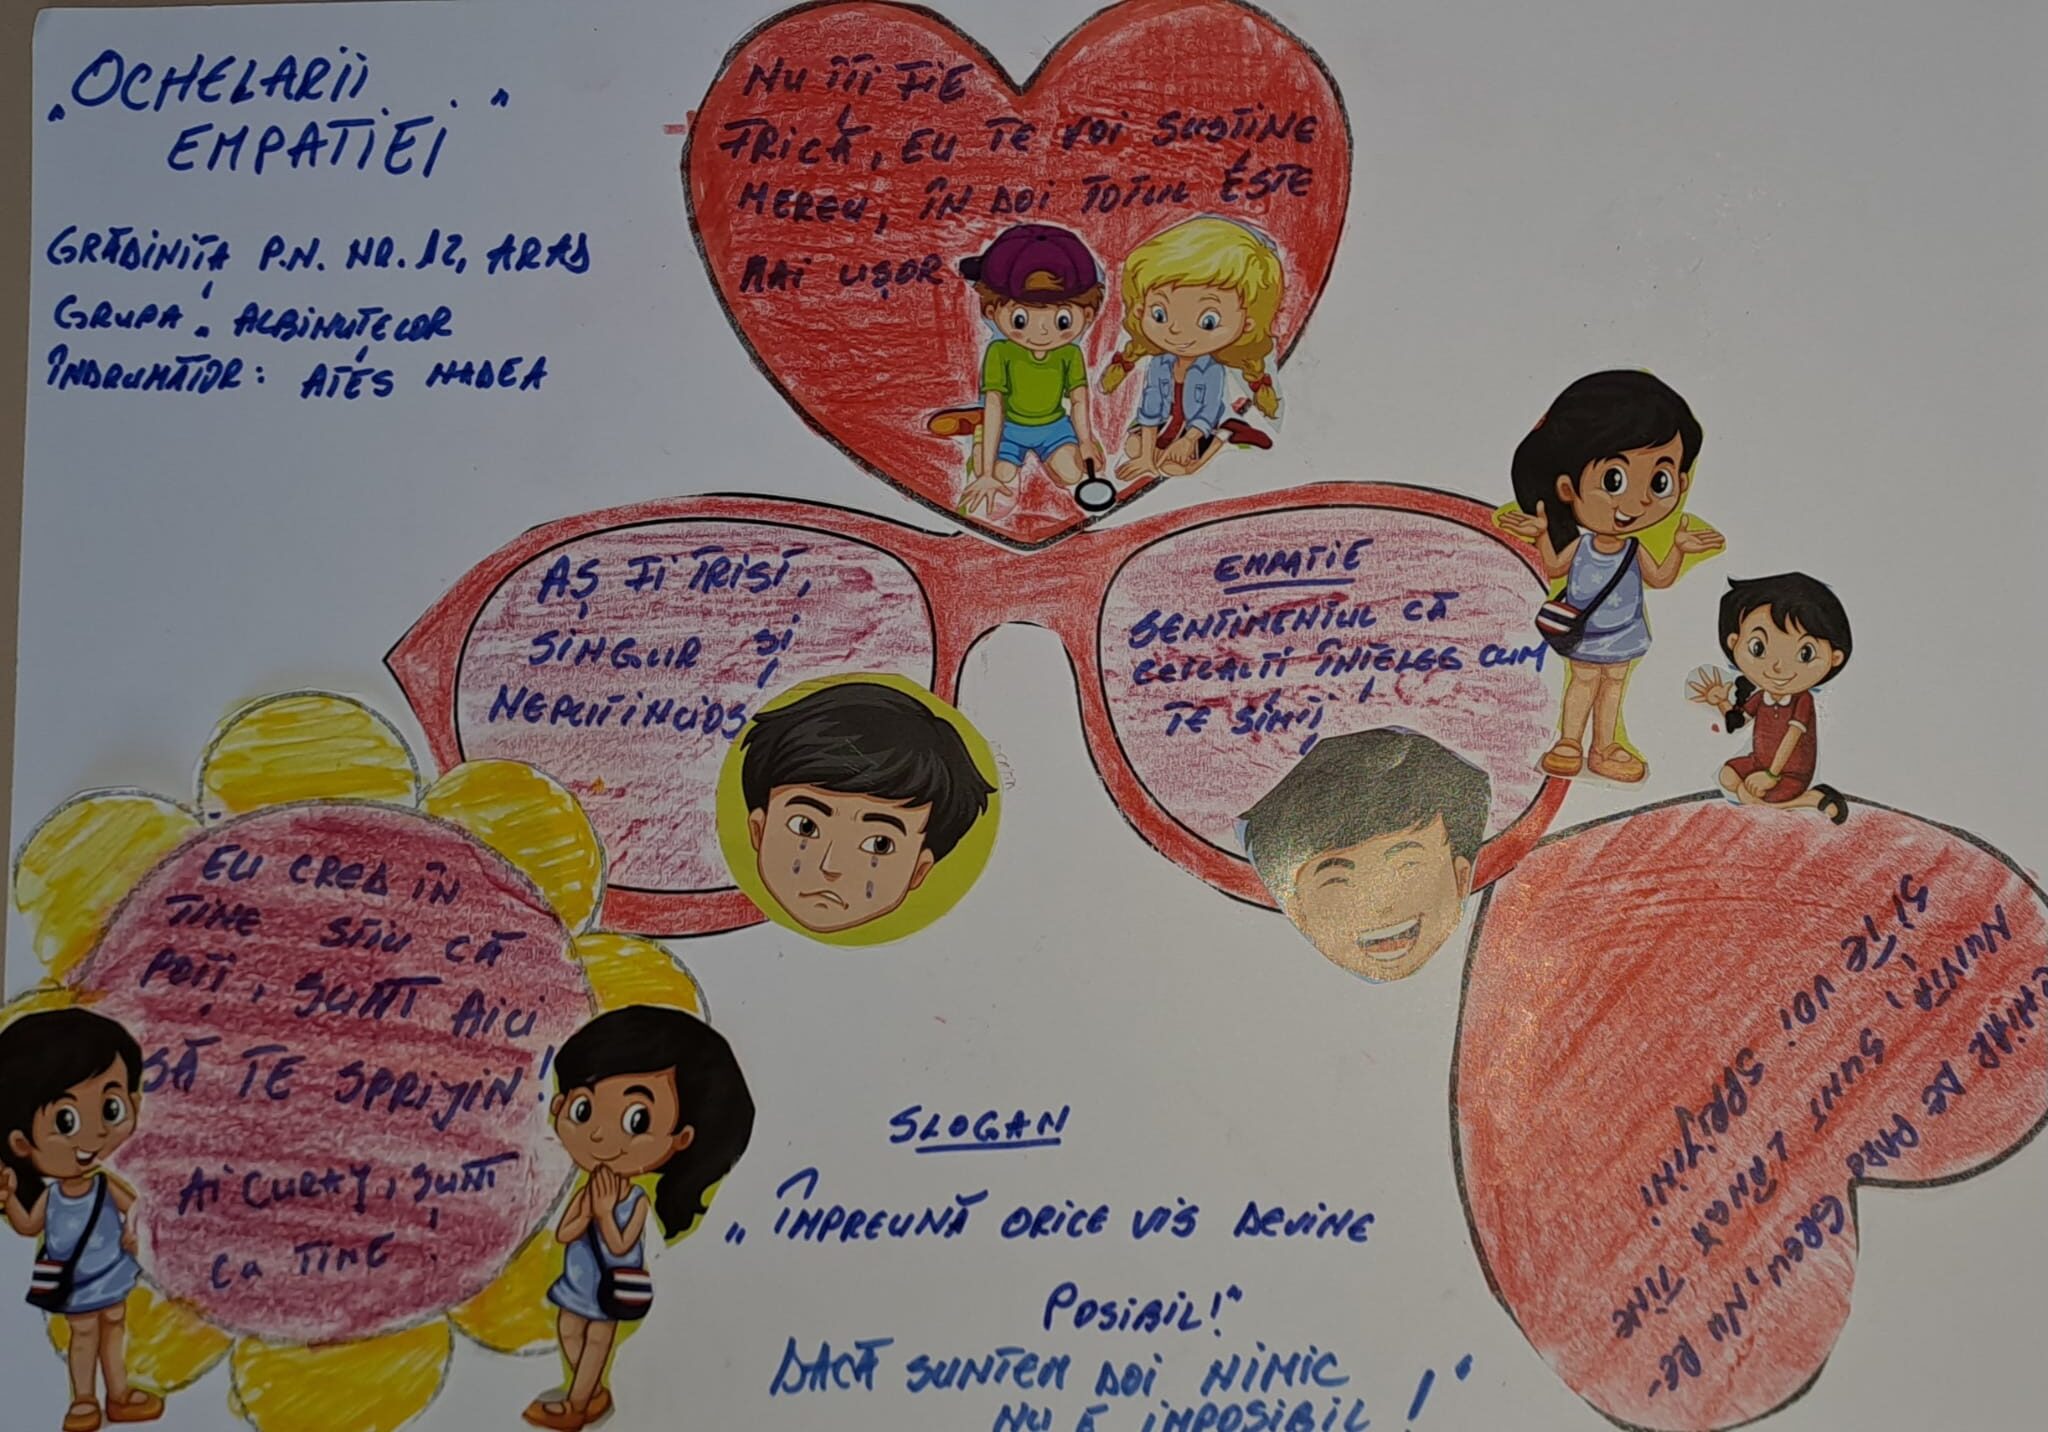 „OCHELARII
EMPATIEI"
GRĂDINIȚA P.N. NR. 12, ARAD
GRUPA „ ALBINUȚELOR
ÎNDRUMĂTOR: ATÉS NADEA
NU ÎȚI FIE
FRICĂ, EU TE VOI SUSȚINE
MEREU, ÎN DOI TOTUL ESTE
MAI UȘOR
AȘ FI TRIST,
SINGUR ȘI
NEPUTINCIOS
EMPATIE
SENTIMENTUL CĂ
CEILALȚI ÎNȚELEG CUM
TE SIMȚI
EU CRED ÎN
TINE STIU CĂ
POȚI, SUNT AICI
SĂ TE SPRIJIN!
AI CURAJ, SUNT
CU TINE!
CHIAR DE PARE GREU, NU RE-
NUNȚA, SUNT LÂNGĂ TINE
SI TE VOI SPRIJINI
SLOGAN
„ÎMPREUNĂ ORICE VIS DEVINE
POSIBIL!"
DACĂ SUNTEM DOI NIMIC
NU E IMPOSIBIL !"